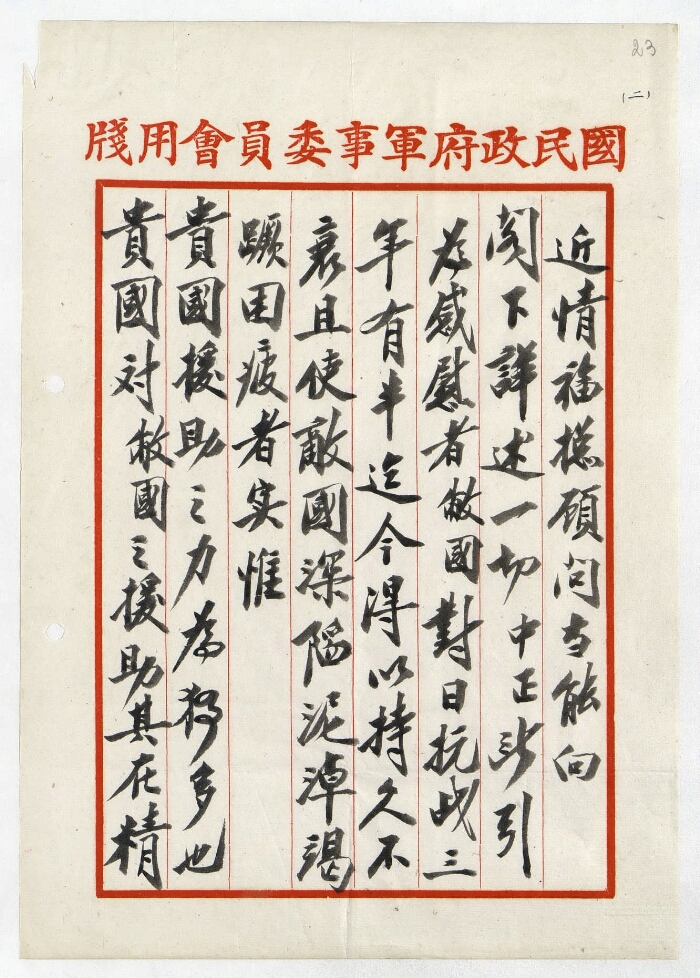 23
(二)
國民政府軍事委員會用牋
近情福㨾顧問當能向
閣下詳述一切中正所引
為感慰者敝國對日抗战三
年有半迄今得以持久不
衰且使敵國深陷泥淖竭
蹶困疲者实惟
貴國援助之力為獨多也
貴國对敝國之援助其在精